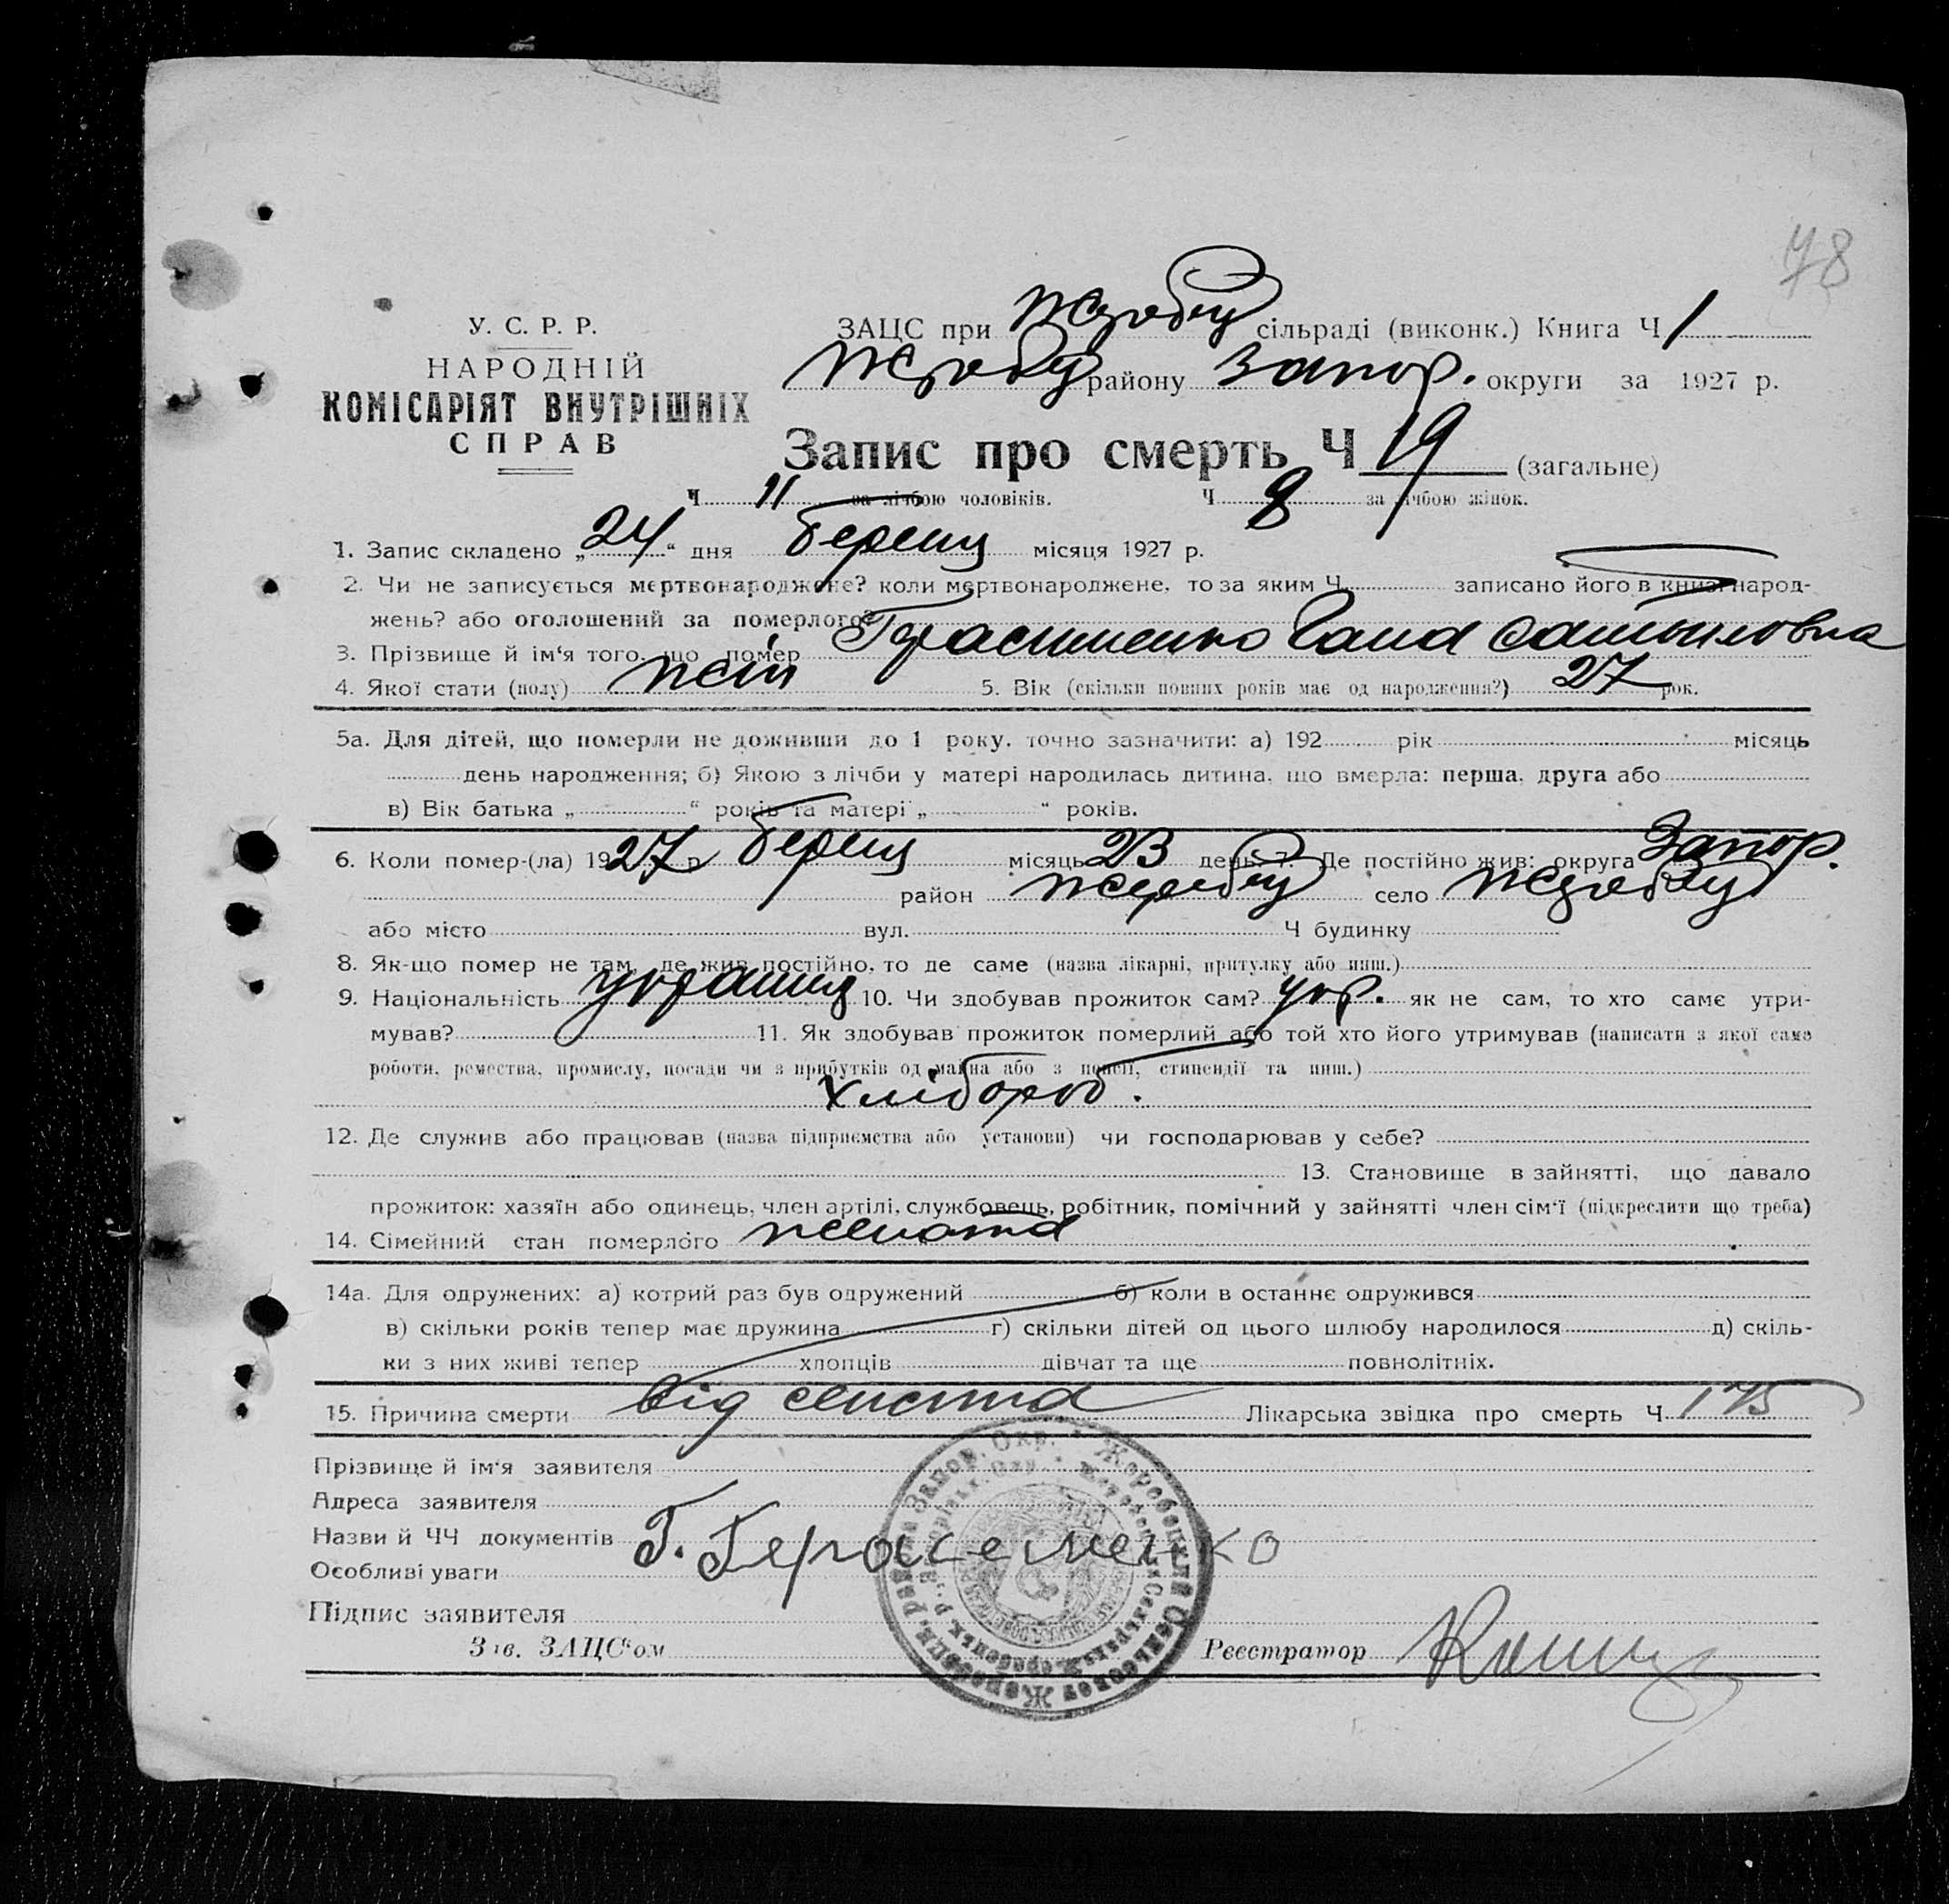 78
У. С. Р. Р.
НАРОДНІЙ
КОМІСАРІЯТ ВНУТРІШНІХ
СПРАВ
ЗАЦС при Жеребец сільраді (виконк.) Книга Ч 1
Жеребец району Запор. округи за 1927 р.
Запис про смерть Ч 19 (загальне)
Ч 11 за лічбою чоловіків. Ч 8 за лічбою жінок.
1. Запис складено „24“ дня березня місяця 1927 р.
2. Чи не записується мертвонароджене? коли мертвонароджене, то за яким Ч записано його в книзі народ-
жень? або оголошений за померлого?
3. Прізвище й ім‘я того, що помер Герасименко Ганна
4. Якої стати (полу) жін 5. Вік (скільки повних років має од народження?) 27 рок.
5а. Для дітей, що померли не доживши до 1 року, точно зазначити: а) 192 рік місяць
день народження; б) Якою з лічби у матері народилась дитина, що вмерла: перша, друга або
в) Вік батька „ “ років та матері „ “ років.
6. Коли помер-(ла) 1927 р. березня місяць 23 день 7. Де постійно жив: округа Запор.
район Жеребец село Жеребец
або місто вул. Ч будинку
8. Як-що помер не там, де жив постійно, то де саме (назва лікарні, притулку або инш.)
9. Національність 10. Чи здобував прожиток сам? укр. як не сам, то хто саме утри-
мував? 11. Як здобував прожиток померлий або той хто його утримував (написати з якої саме
роботи, ремества, промислу, посади чи з прибутків од майна або з пенсії, стипендії та инш.)
хлібороб.
12. Де служив або працював (назва підприємства або установи) чи господарював у себе?
13. Становище в зайнятті, що давало
прожиток: хазяїн або одинець, член артілі, службовець, робітник, помічний у зайнятті член сім‘ї (підкреслити що треба)
14. Сімейний стан померлого жената
14а. Для одружених: а) котрий раз був одружений б) коли в останнє одружився
в) скільки років тепер має дружина г) скільки дітей од цього шлюбу народилося д) скіль-
ки з них живі тепер хлопців дівчат та ще повнолітніх.
15. Причина смерти від сепсиса Лікарська звідка про смерть Ч 175
Прізвище й ім‘я заявителя
Адреса заявителя
Назви й ЧЧ документів Г. Герасеменко
Особливі уваги
Підпис заявителя
Зав. ЗАЦС‘ом Реєстратор